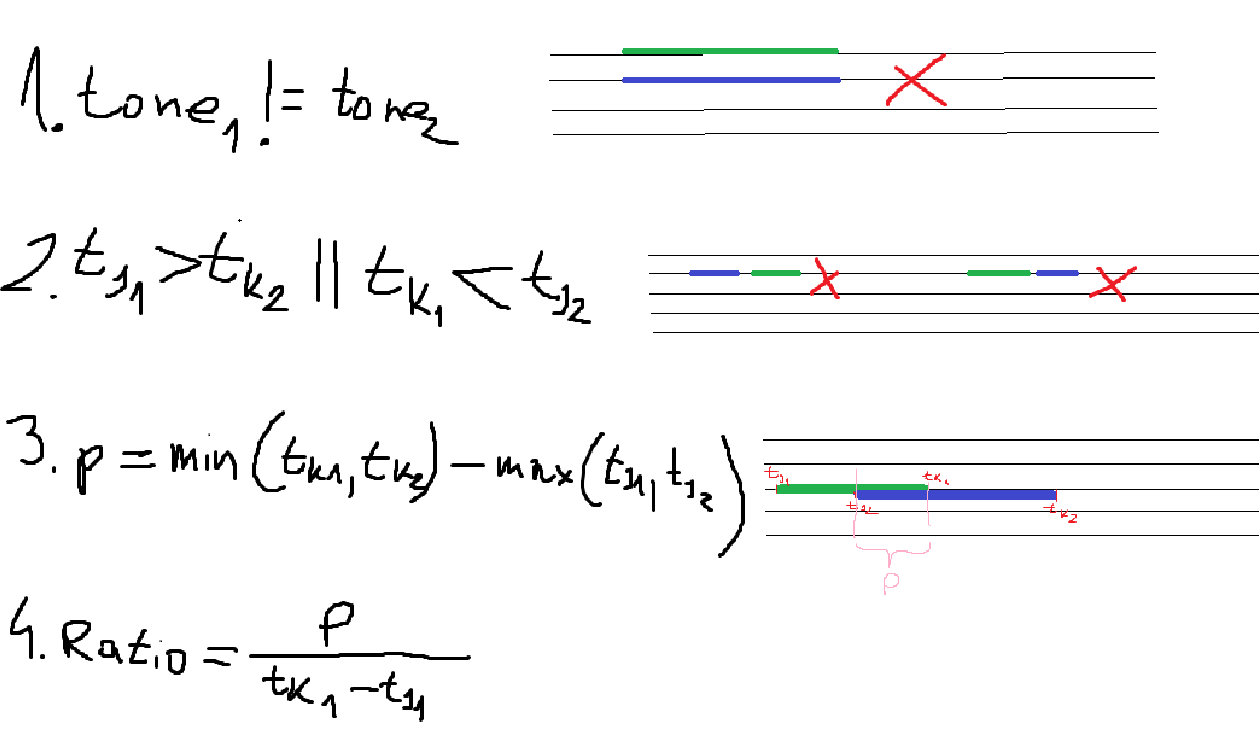 1. tone₁ != tone₂
2. tз₁ > tk₂ || tk₁ < tз₂
3. p = min(tk₁, tk₂) - max(tз₁, tз₂)
tз₁
tk₁
tз₂
tk₂
p
4. Ratio = p / (tk₁ - tз₁)